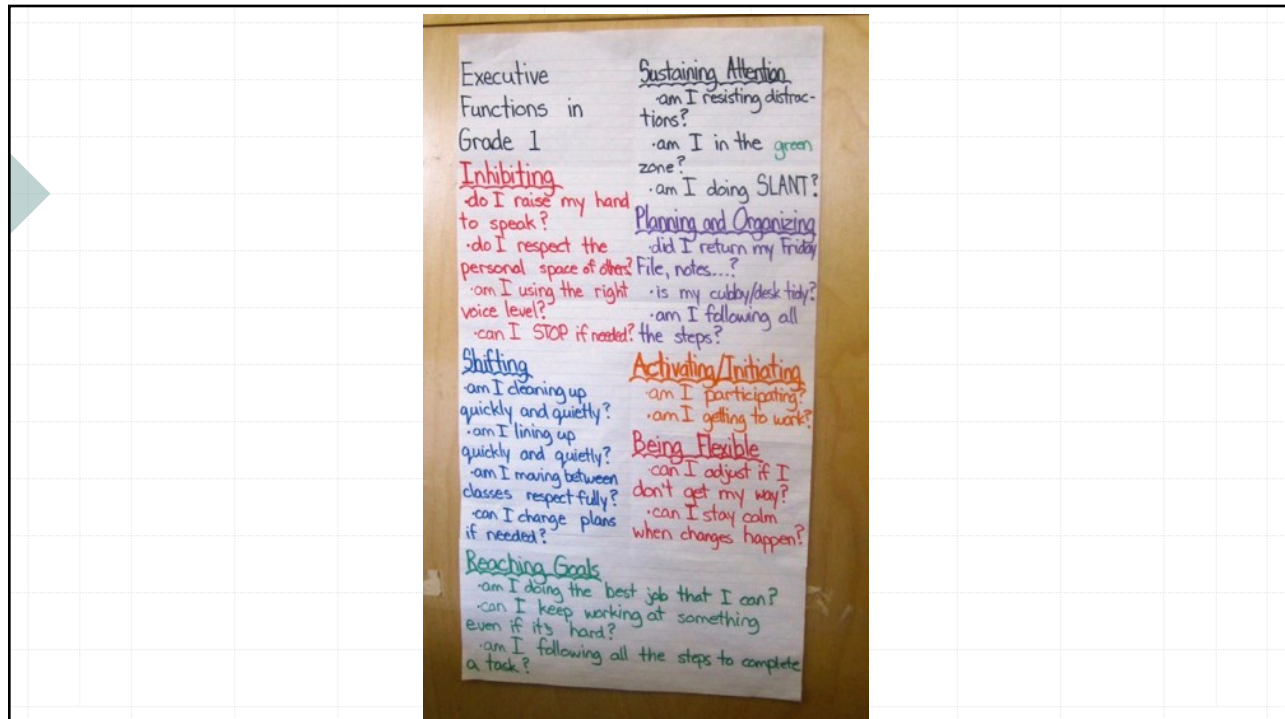 Executive
Functions in
Grade 1
Inhibiting
·do I raise my hand
to speak?
·do I respect the
personal space of others?
·am I using the right
voice level?
·can I STOP if needed?
Shifting
·am I cleaning up
quickly and quietly?
·am I lining up
quickly and quietly?
·am I moving between
classes respectfully?
·can I change plans
if needed?
Sustaining Attention
·am I resisting distrac-
tions?
·am I in the green
zone?
·am I doing SLANT?
Planning and Organizing
·did I return my Friday
File, notes...?
·is my cubby/desk tidy?
·am I following all
the steps?
Activating/Initiating
·am I participating?
·am I getting to work?
Being Flexible
·can I adjust if I
don't get my way?
·can I stay calm
when changes happen?
Reaching Goals
·am I doing the best job that I can?
·can I keep working at something
even if it's hard?
·am I following all the steps to complete
a task?